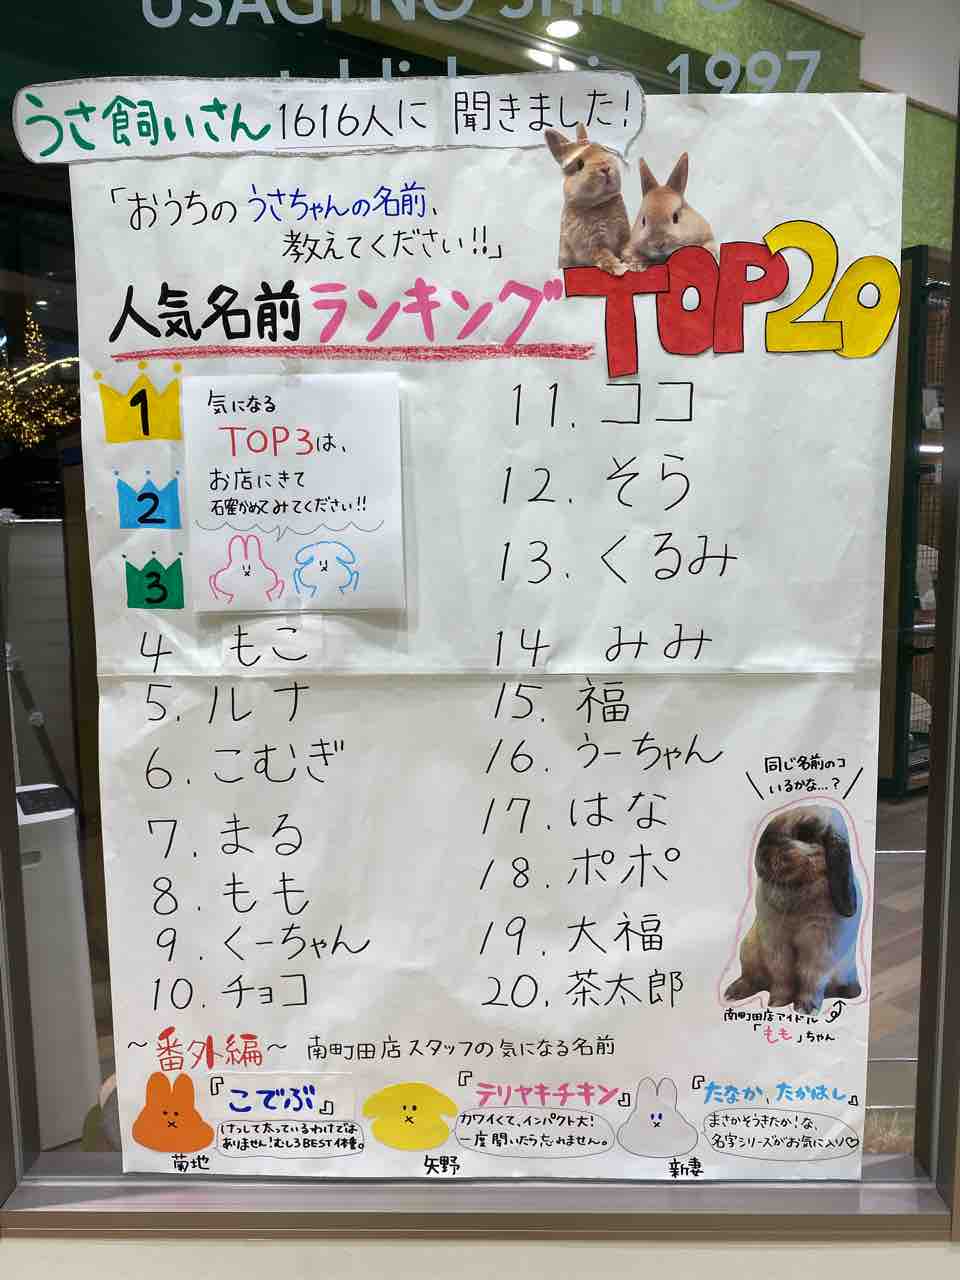 USAGI NO SHIPPO
established in 1997
うさ飼いさん 1616人に 聞きました!
「おうちの うさちゃんの名前、
教えてください!!」
人気名前ランキング TOP20
1
2
3
気になる
TOP3は、
お店にきて
確かめてみてください!!
4 もこ
5. ルナ
6. こむぎ
7. まる
8. もも
9. くーちゃん
10. チョコ
11. ココ
12. そら
13. くるみ
14 みみ
15. 福
16. うーちゃん
17. はな
18. ポポ
19. 大福
20. 茶太郎
同じ名前のコ
いるかな…?
南町田店アイドル
「もも」ちゃん
~番外編~ 南町田店スタッフの気になる名前
『こでぶ』
けっして太っているわけでは
ありません!むしろBEST体重。
菊地
『テリヤキチキン』
カワイくて、インパクト大!
一度聞いたら忘れません。
矢野
『たなか、たかはし』
まさかそうきたか!な、
名字シリーズがお気に入り♡
新妻